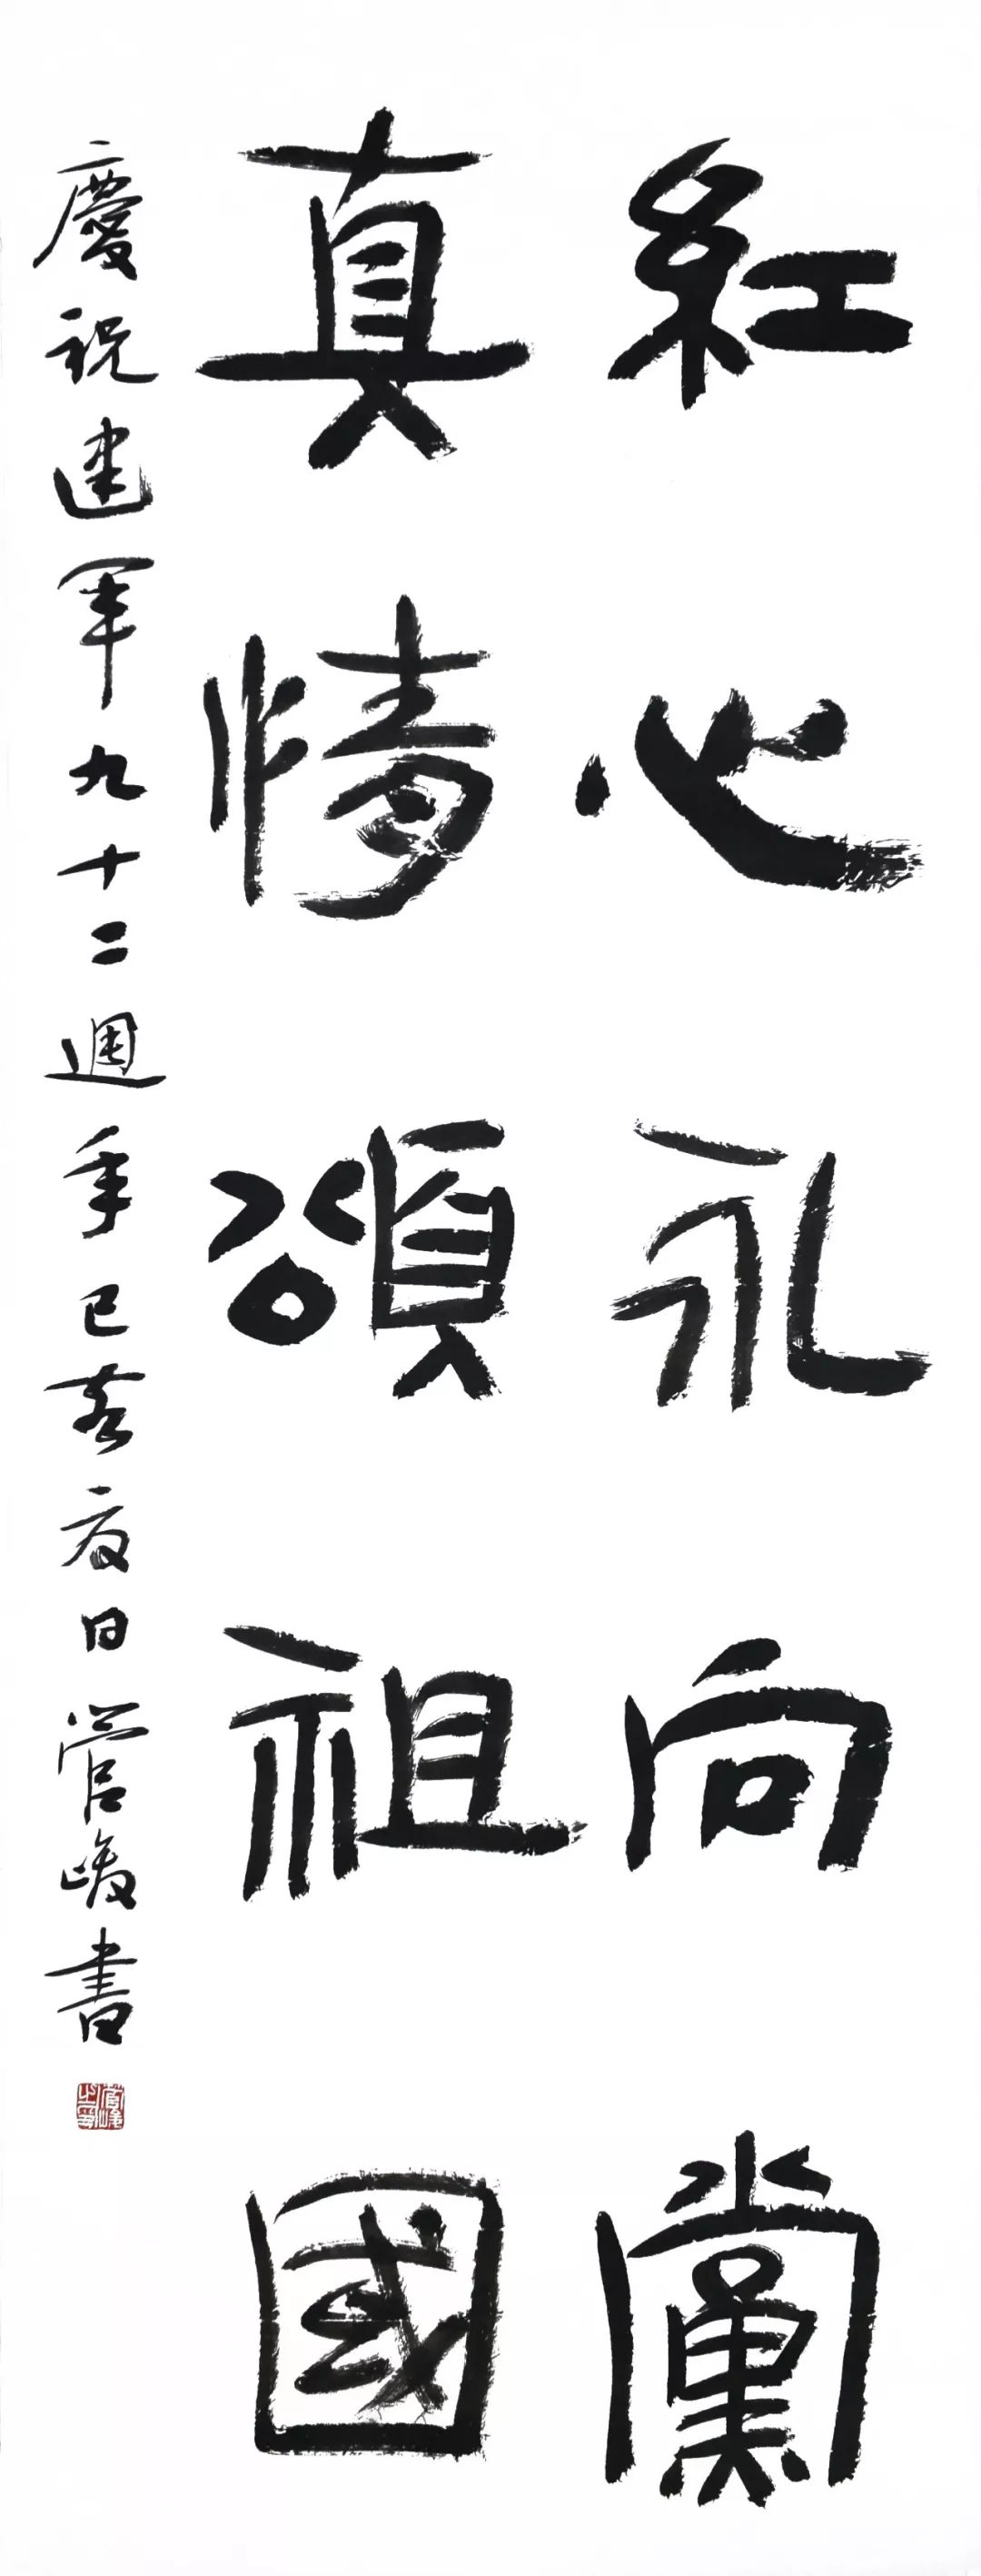 紅心永向黨
真情頌祖國
慶祝建軍九十二週年己亥夏日管峻書